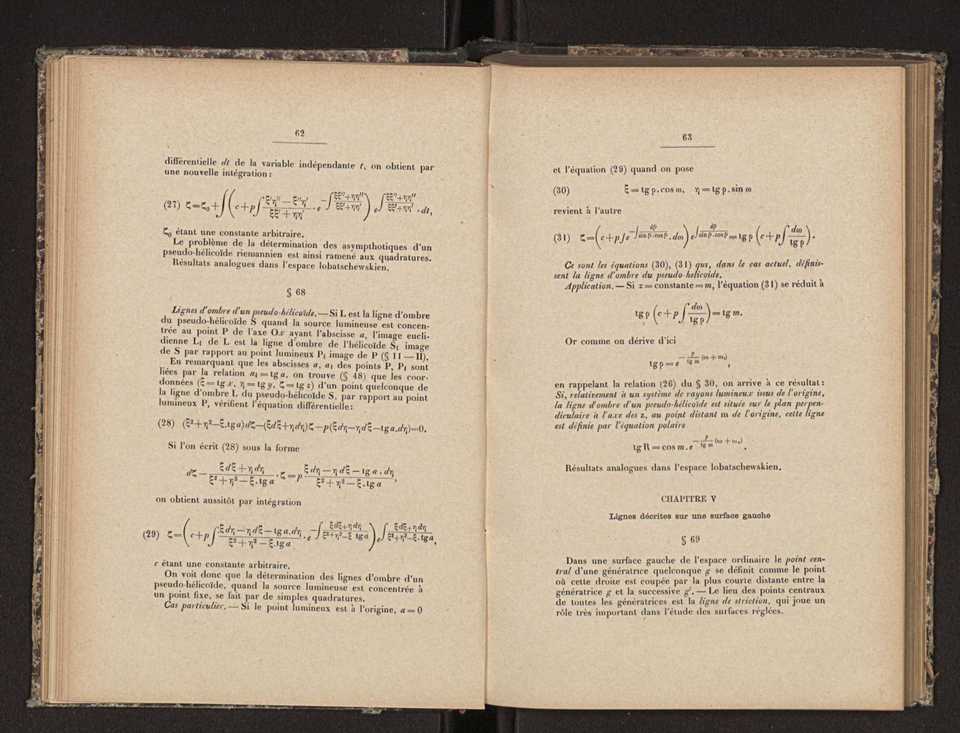 62
différentielle dt de la variable indépendante t, on obtient par
une nouvelle intégration :
(27) ζ=ζ₀+∫(c+p∫ (ξ'η''−ξ''η')/(ξξ'+ηη') . e^{−∫(ξξ''+ηη'')/(ξξ'+ηη')}) e^{∫(ξξ''+ηη'')/(ξξ'+ηη')} . dt,
ζ₀ étant une constante arbitraire.
Le problème de la détermination des asympthotiques d'un
pseudo-hélicoïde riemannien est ainsi ramené aux quadratures.
Résultats analogues dans l'espace lobatschewskien.
§ 68
Lignes d'ombre d'un pseudo-hélicoïde. — Si L est la ligne d'ombre
du pseudo-hélicoïde S quand la source lumineuse est concen-
trée au point P de l'axe Ox ayant l'abscisse a, l'image eucli-
dienne L₁ de L est la ligne d'ombre de l'hélicoïde S₁ image
de S par rapport au point lumineux P₁ image de P (§ 11 — II).
En remarquant que les abscisses a, a₁ des points P, P₁ sont
liées par la relation a₁ = tg a, on trouve (§ 48) que les coor-
données (ξ = tg x, η = tg y, ζ = tg z) d'un point quelconque de
la ligne d'ombre L du pseudo-hélicoïde S, par rapport au point
lumineux P, vérifient l'équation différentielle:
(28) (ξ²+η²−ξ.tg a)dζ−(ξdξ+ηdη)ζ−p(ξdη−ηdξ−tg a.dη)=0.
Si l'on écrit (28) sous la forme
dζ − (ξ dξ + η dη)/(ξ² + η² − ξ . tg a) . ζ = p (ξ dη − η dξ − tg a . dη)/(ξ² + η² − ξ . tg a),
on obtient aussitôt par intégration
(29) ζ=(c+p∫ (ξ dη − η dξ − tg a.dη)/(ξ² + η² − ξ.tg a) . e^{−∫(ξdξ+ηdη)/(ξ²+η²−ξ tg a)}) e^{∫(ξdξ+ηdη)/(ξ²+η²−ξ.tg a)},
c étant une constante arbitraire.
On voit donc que la détermination des lignes d'ombre d'un
pseudo-hélicoïde, quand la source lumineuse est concentrée à
un point fixe, se fait par de simples quadratures.
Cas particulier. — Si le point lumineux est à l'origine, a = 0
63
et l'équation (29) quand on pose
(30) ξ = tg p . cos ω, η = tg p . sin ω
revient à l'autre
(31) ζ=(c+p∫e^{−∫dp/(sin p.cos p)} . dω) e^{∫dp/(sin p.cos p)} = tg p (c+p∫ dω/tg p).
Ce sont les équations (30), (31) qui, dans le cas actuel, définis-
sent la ligne d'ombre du pseudo-hélicoïde.
Application. — Si z = constante = m, l'équation (31) se réduit à
tg p (c + p ∫ dω/tg p) = tg m.
Or comme on dérive d'ici
tg p = e^{−p/tg m (ω + ω₁)},
en rappelant la relation (26) du § 30, on arrive à ce résultat :
Si, relativement à un système de rayons lumineux issus de l'origine,
la ligne d'ombre d'un pseudo-hélicoïde est située sur le plan perpen-
diculaire à l'axe des z, au point distant m de l'origine, cette ligne
est définie par l'équation polaire
tg R = cos m . e^{−p/tg m (ω + ω₀)}.
Résultats analogues dans l'espace lobatschewskien.
CHAPITRE V
Lignes décrites sur une surface gauche
§ 69
Dans une surface gauche de l'espace ordinaire le point cen-
tral d'une génératrice quelconque g se définit comme le point
où cette droite est coupée par la plus courte distante entre la
génératrice g et la successive g'. — Le lieu des points centraux
de toutes les génératrices est la ligne de striction, qui joue un
rôle très important dans l'étude des surfaces réglées.